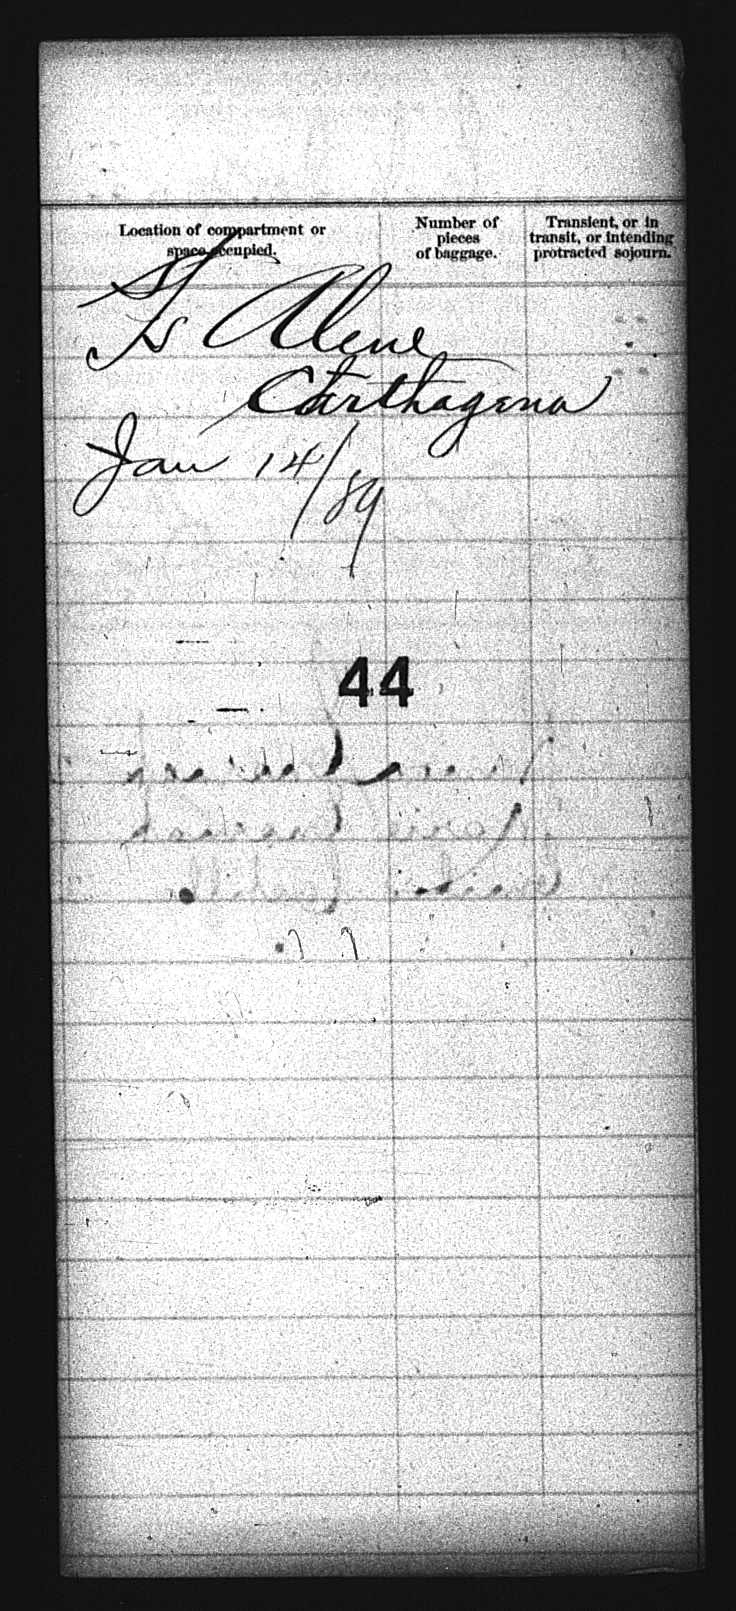 Location of compartment or
space occupied.
Number of
pieces
of baggage.
Transient, or in
transit, or intending
protracted sojourn.
SS Alene
Carthagena
Jan 14/89
44